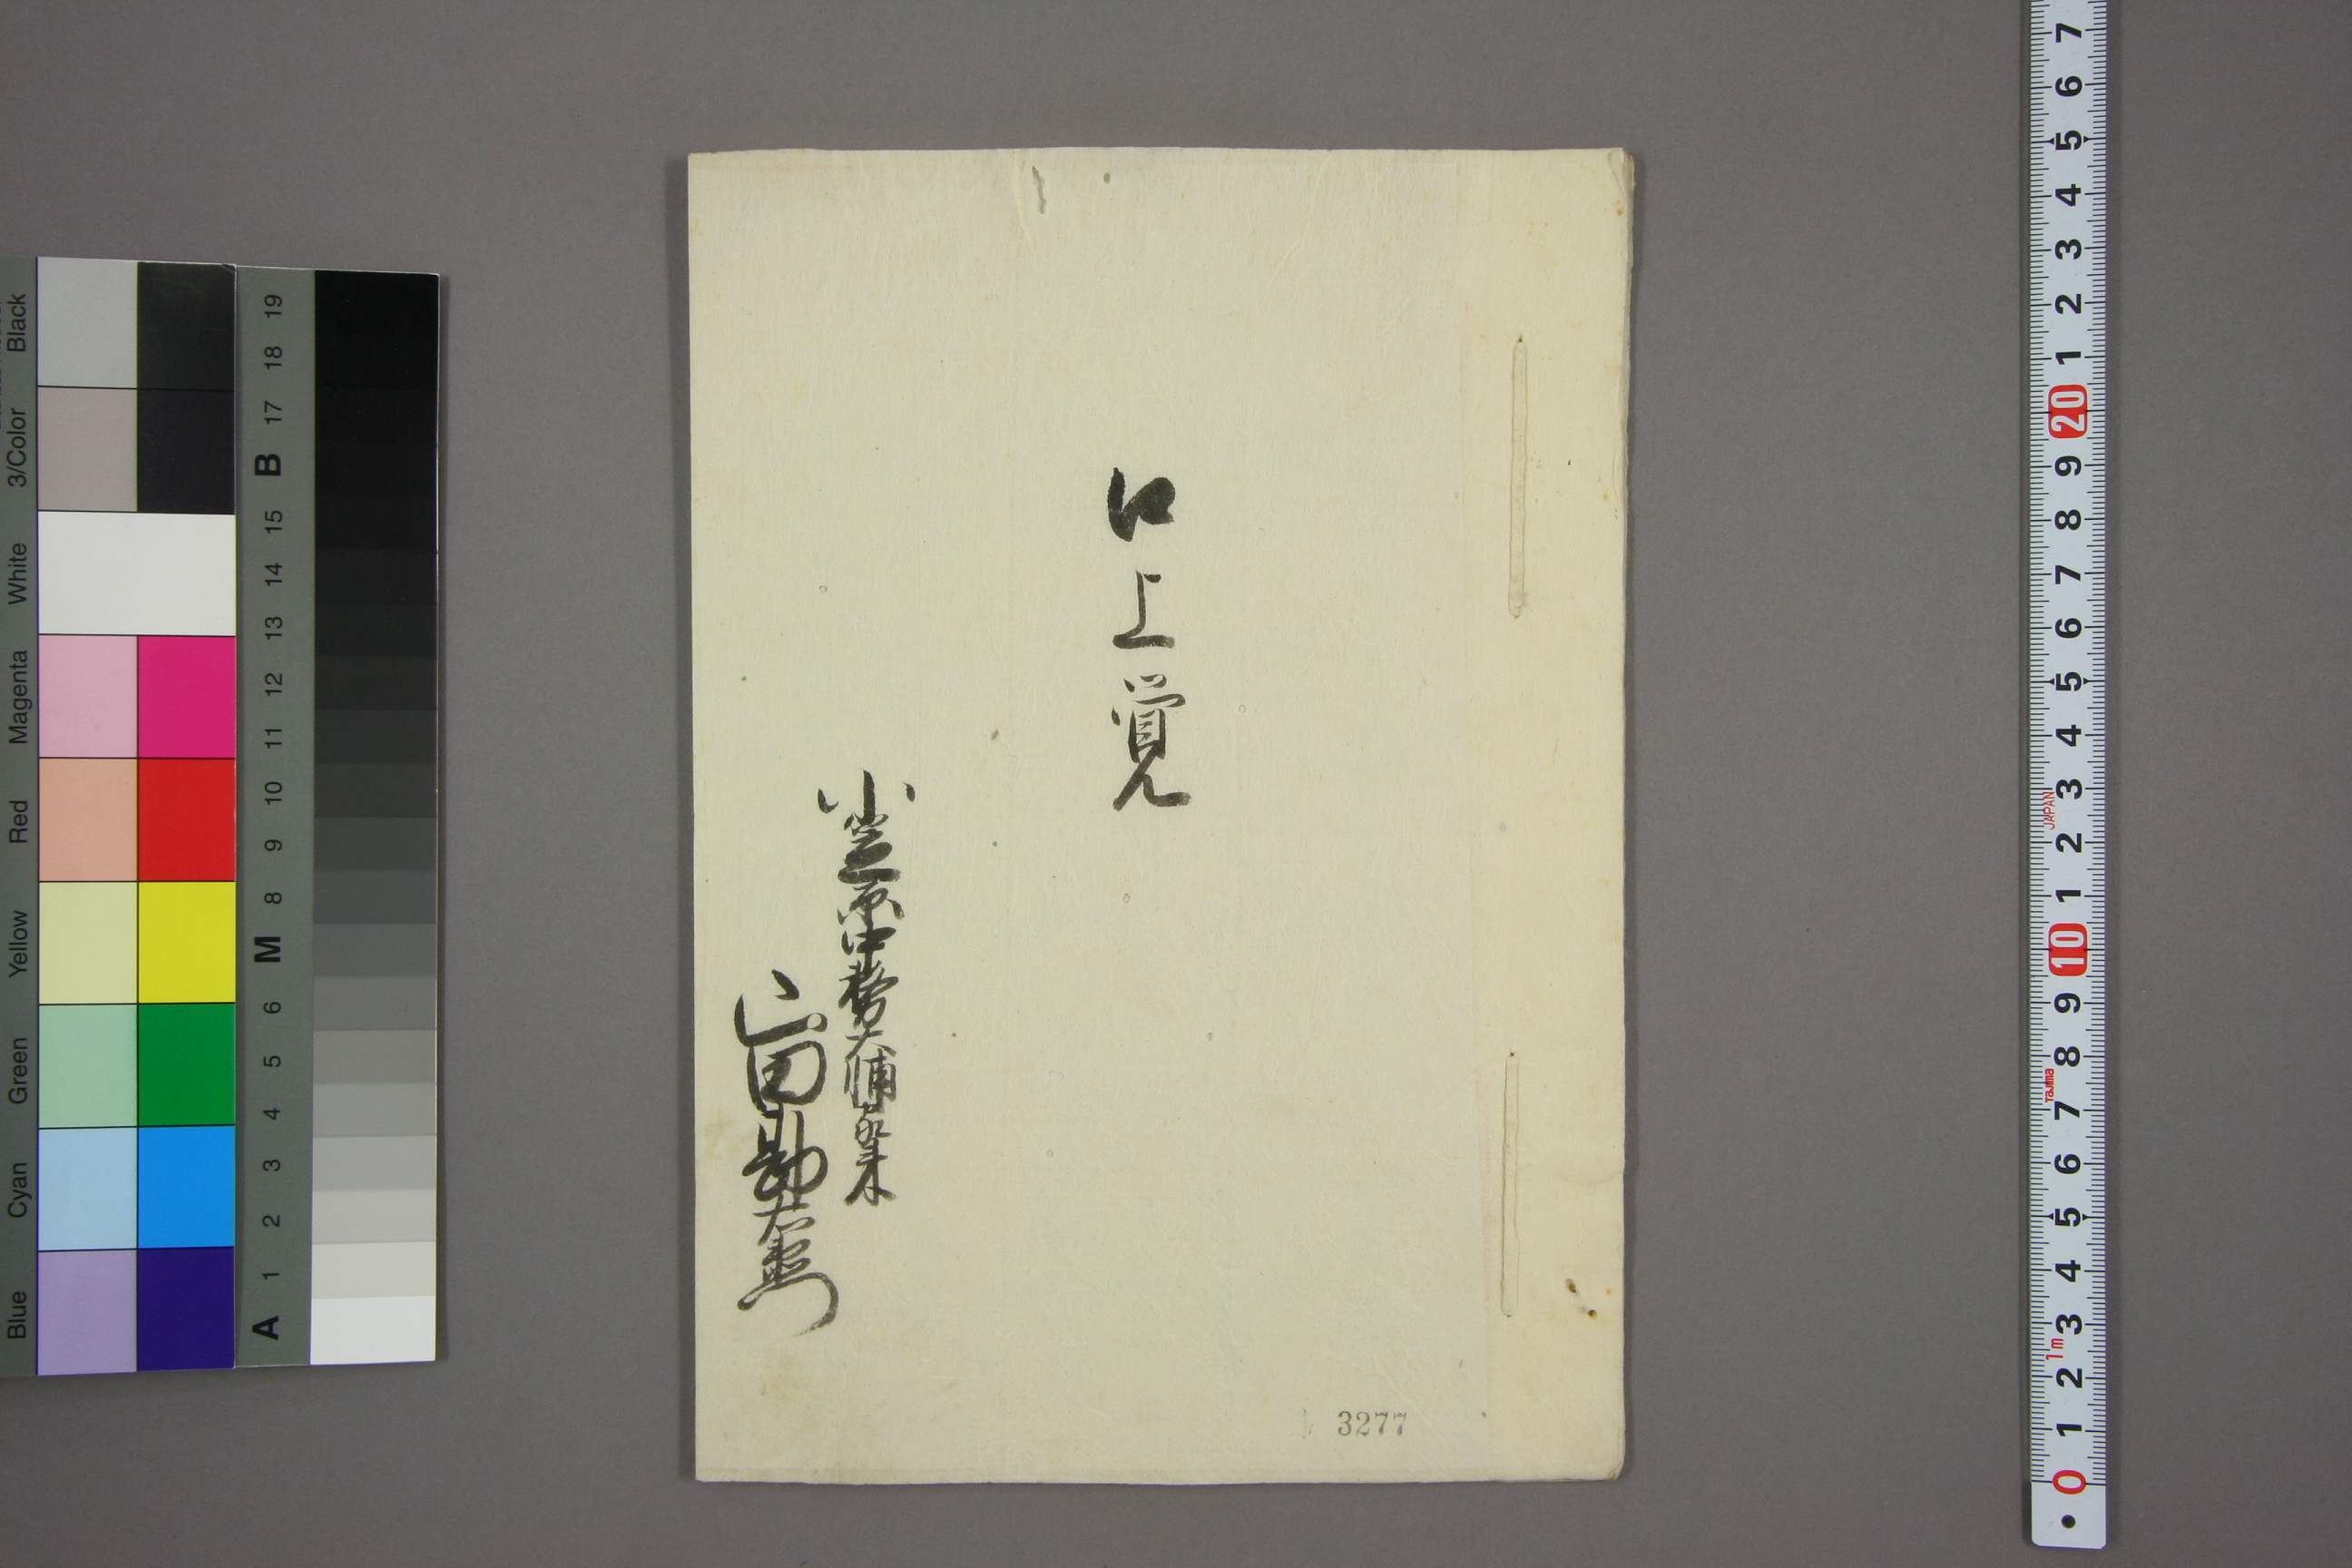 口上覚
小笠原中務大輔家来
山田勘右衛門
3277
Black
3/Color
White
Magenta
Red
Yellow
Green
Cyan
Blue
19
18
17
B
15
14
13
12
11
10
9
8
M
6
5
4
3
2
A 1
7
6
5
4
3
2
1
20
9
8
7
6
5
4
3
2
1
10
9
8
7
6
5
4
3
2
1
0
JAPAN
Tajima
1m